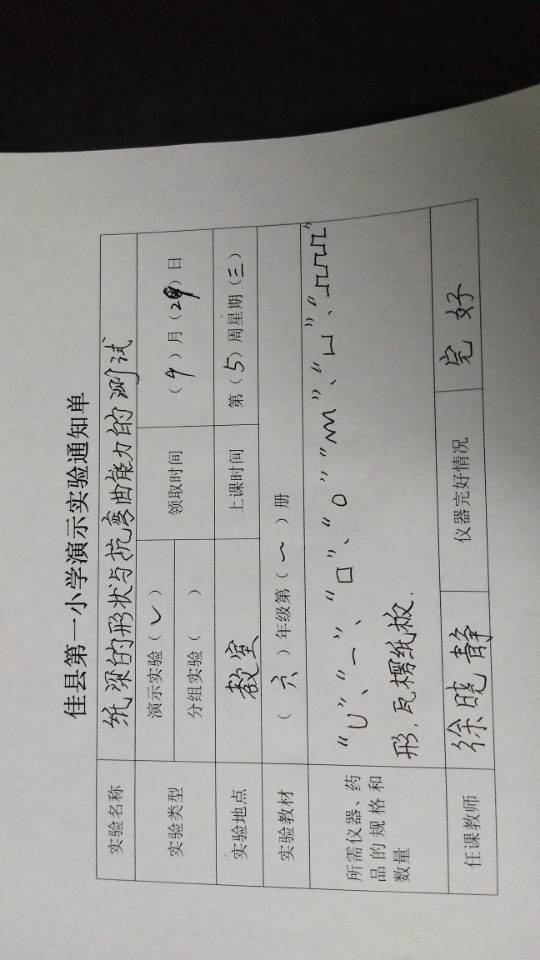 佳县第一小学演示实验通知单
实验名称 纸梁的形状与抗弯曲能力的测试
实验类型 演示实验(✓) 领取时间 (9)月(29)日
分组实验( )
实验地点 教室 上课时间 第(5)周星期(三)
实验教材 (六)年级第(一)册
所需仪器、药品的规格和数量
“U”、“一”、“口”、“O”“
”、“凵”、“
”
形,瓦楞纸板.
任课教师 徐晓静 仪器完好情况 完好